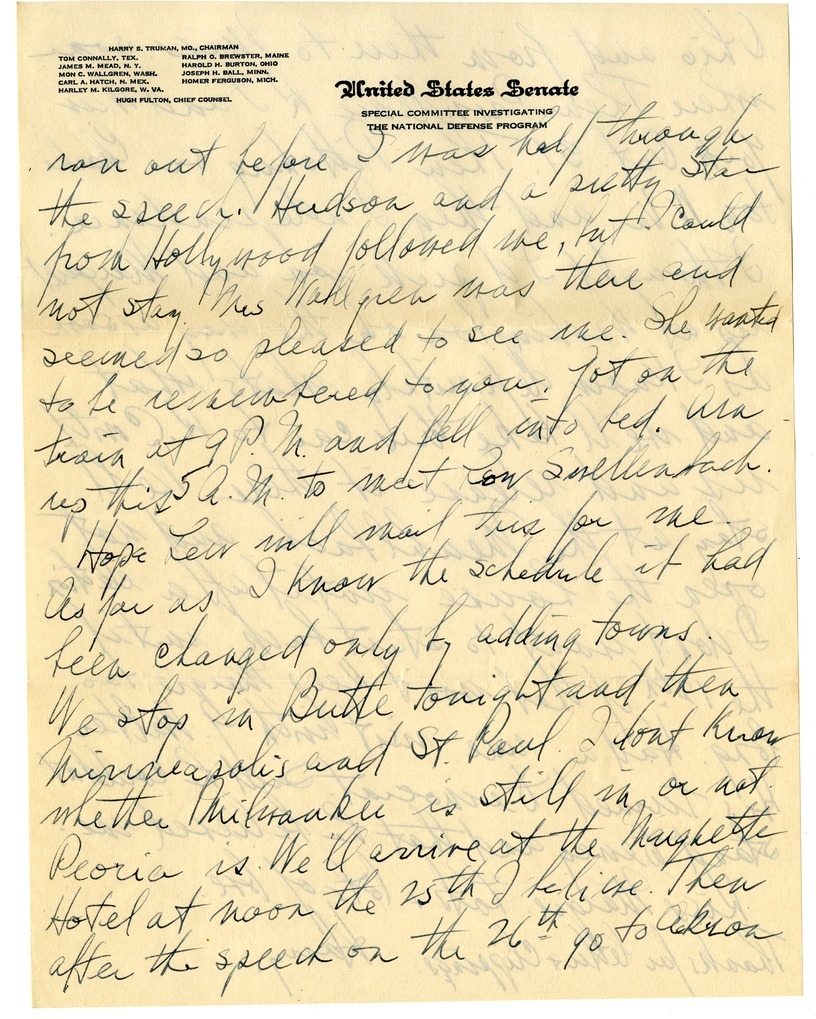 HARRY S. TRUMAN, MO., CHAIRMAN
TOM CONNALLY, TEX.
JAMES M. MEAD, N. Y.
MON C. WALLGREN, WASH.
CARL A. HATCH, N. MEX.
HARLEY M. KILGORE, W. VA.
RALPH O. BREWSTER, MAINE
HAROLD H. BURTON, OHIO
JOSEPH H. BALL, MINN.
HOMER FERGUSON, MICH.
HUGH FULTON, CHIEF COUNSEL
United States Senate
SPECIAL COMMITTEE INVESTIGATING
THE NATIONAL DEFENSE PROGRAM
ran out before I was half through
the speech. Hudson and a pretty Star
from Hollywood followed me, but I could
not stay. Mrs Wallgren was there and
seemed so pleased to see me. She wanted
to be remembered to you. Got on the
train at 9 P.M. and fell into bed. Am
up this 5 A.M. to meet Lew Swellenbach.
Hope Lew will mail this for me.
As far as I know the schedule it had
been changed only by adding towns.
We stop in Butte tonight and then
Minneapolis and St. Paul. I dont know
whether Milwaukee is still in or not.
Peoria is. We'll arrive at the Marquette
Hotel at noon the 25th I believe. Then
after the speech on the 26th go to Akron